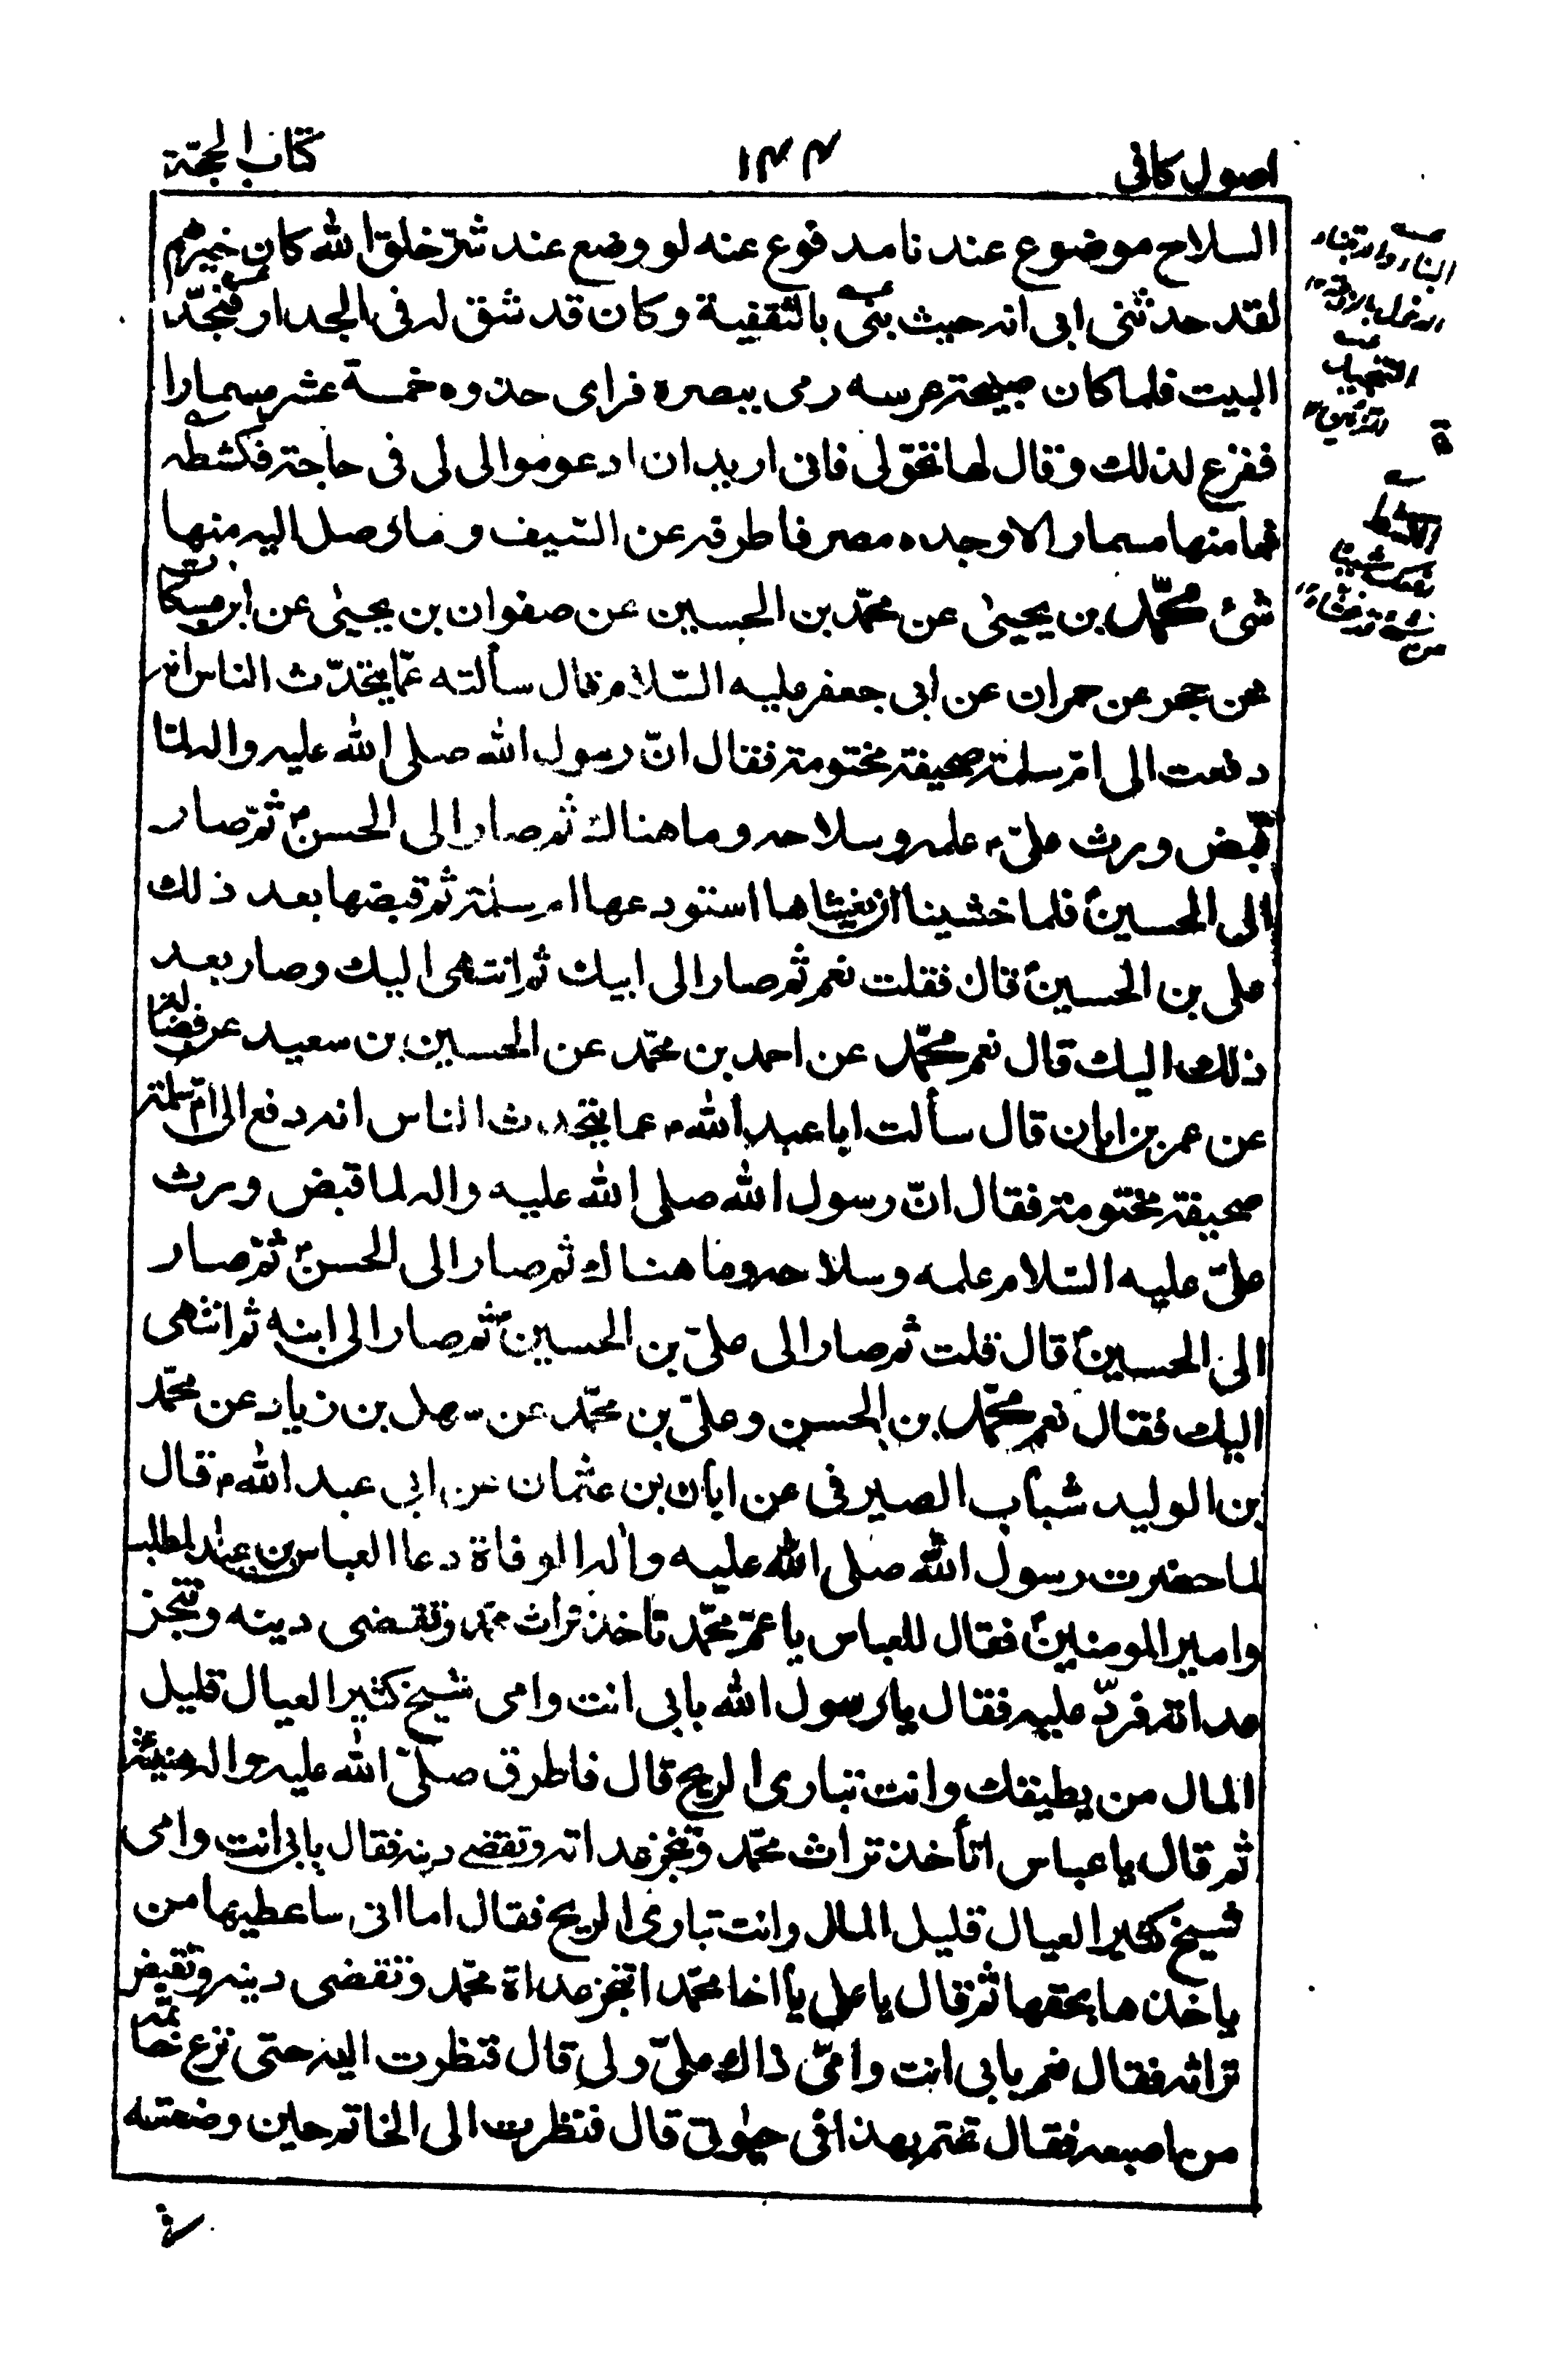 اصول كافى ١٤٤ كتاب الحجّة
السلاح موضوع عندنا مدفوع عنه لو وضع عند شرّ خلق الله كان خيرهم
لقد حدثنى ابى انه حيث بنى بالثقفية وكان قد شق له فى الجدار فنجّد
البيت فلما كان صبيحة عرسه رمى ببصره فراى حذوه خمسة عشر مسمارا
ففزع لذلك وقال لها تحولى فانى اريد ان ادعو موالى لى فى حاجة فكشطه
فما منها مسمار الا وجده مصرفا طرفه عن السيف وما وصل اليه منها
شئ محمّد بن يحيى عن محمّد بن الحسين عن صفوان بن يحيى عن ابن مسكان
عن حجر عن حمران عن ابى جعفر عليه السّلام قال سألته عمّا يتحدّث الناس انه
دفعت الى امّ سلمة صحيفة مختومة فقال انّ رسول الله صلى الله عليه واله لما
قبض ورث علىّ ع علمه وسلاحه وما هناك ثم صار الى الحسنؑ ثمّ صار
الى الحسينؑ فلما خشينا ان نغشاها استودعها ام سلمة ثم قبضها بعد ذلك
على بن الحسينؑ قال فقلت نعم ثم صار الى ابيك ثم انتهى اليك وصار بعد
ذلك اليك قال نعم محمّد عن احمد بن محمّد عن الحسين بن سعيد عن فضالة
عن عمر بن ابان قال سألت ابا عبد الله ع عما يتحدث الناس انه دفع الى امّ سلمة
صحيفة مختومة فقال انّ رسول الله صلى الله عليه واله لما قبض ورث
علىّ عليه السّلام علمه وسلاحه وما هناك ثم صار الى الحسنؑ ثمّ صار
الى الحسينؑ قال قلت ثم صار الى علىّ بن الحسينؑ ثم صار الى ابنه ثم انتهى
اليك فقال نعم محمّد بن الحسن وعلىّ بن محمّد عن سهل بن زياد عن محمّد
بن الوليد شباب الصيرفى عن ابان بن عثمان عن ابى عبد الله ع قال
لما حضرت رسول الله صلى الله عليه واله الوفاة دعا العباس بن عبد المطلب
وامير المومنينؑ فقال للعباس يا عمّ محمّد تاخذ تراث محمّد وتقضى دينه وتنجز
عداته فردّ عليه فقال يا رسول الله بابى انت وامى شيخ كثير العيال قليل
المال من يطيقك وانت تبارى الريح قال فاطرق صلّى الله عليه واله هنيئة
ثم قال يا عباس اتأخذ تراث محمّد وتنجز عداته وتقضى دينه فقال بابى انت وامى
شيخ كثير العيال قليل المال وانت تبارى الريح فقال اما انى ساعطيها من
ياخذها بحقها ثم قال يا على يا اخا محمّد اتنجز عداة محمّد وتقضى دينه وتقبض
تراثه فقال نعم بابى انت وامّى ذاك علىّ ولى قال فنظرت اليه حتى نزع خاتمه
من اصبعه فقال تختم بهذا فى حيوتى قال فنظرت الى الخاتم حين وضعته